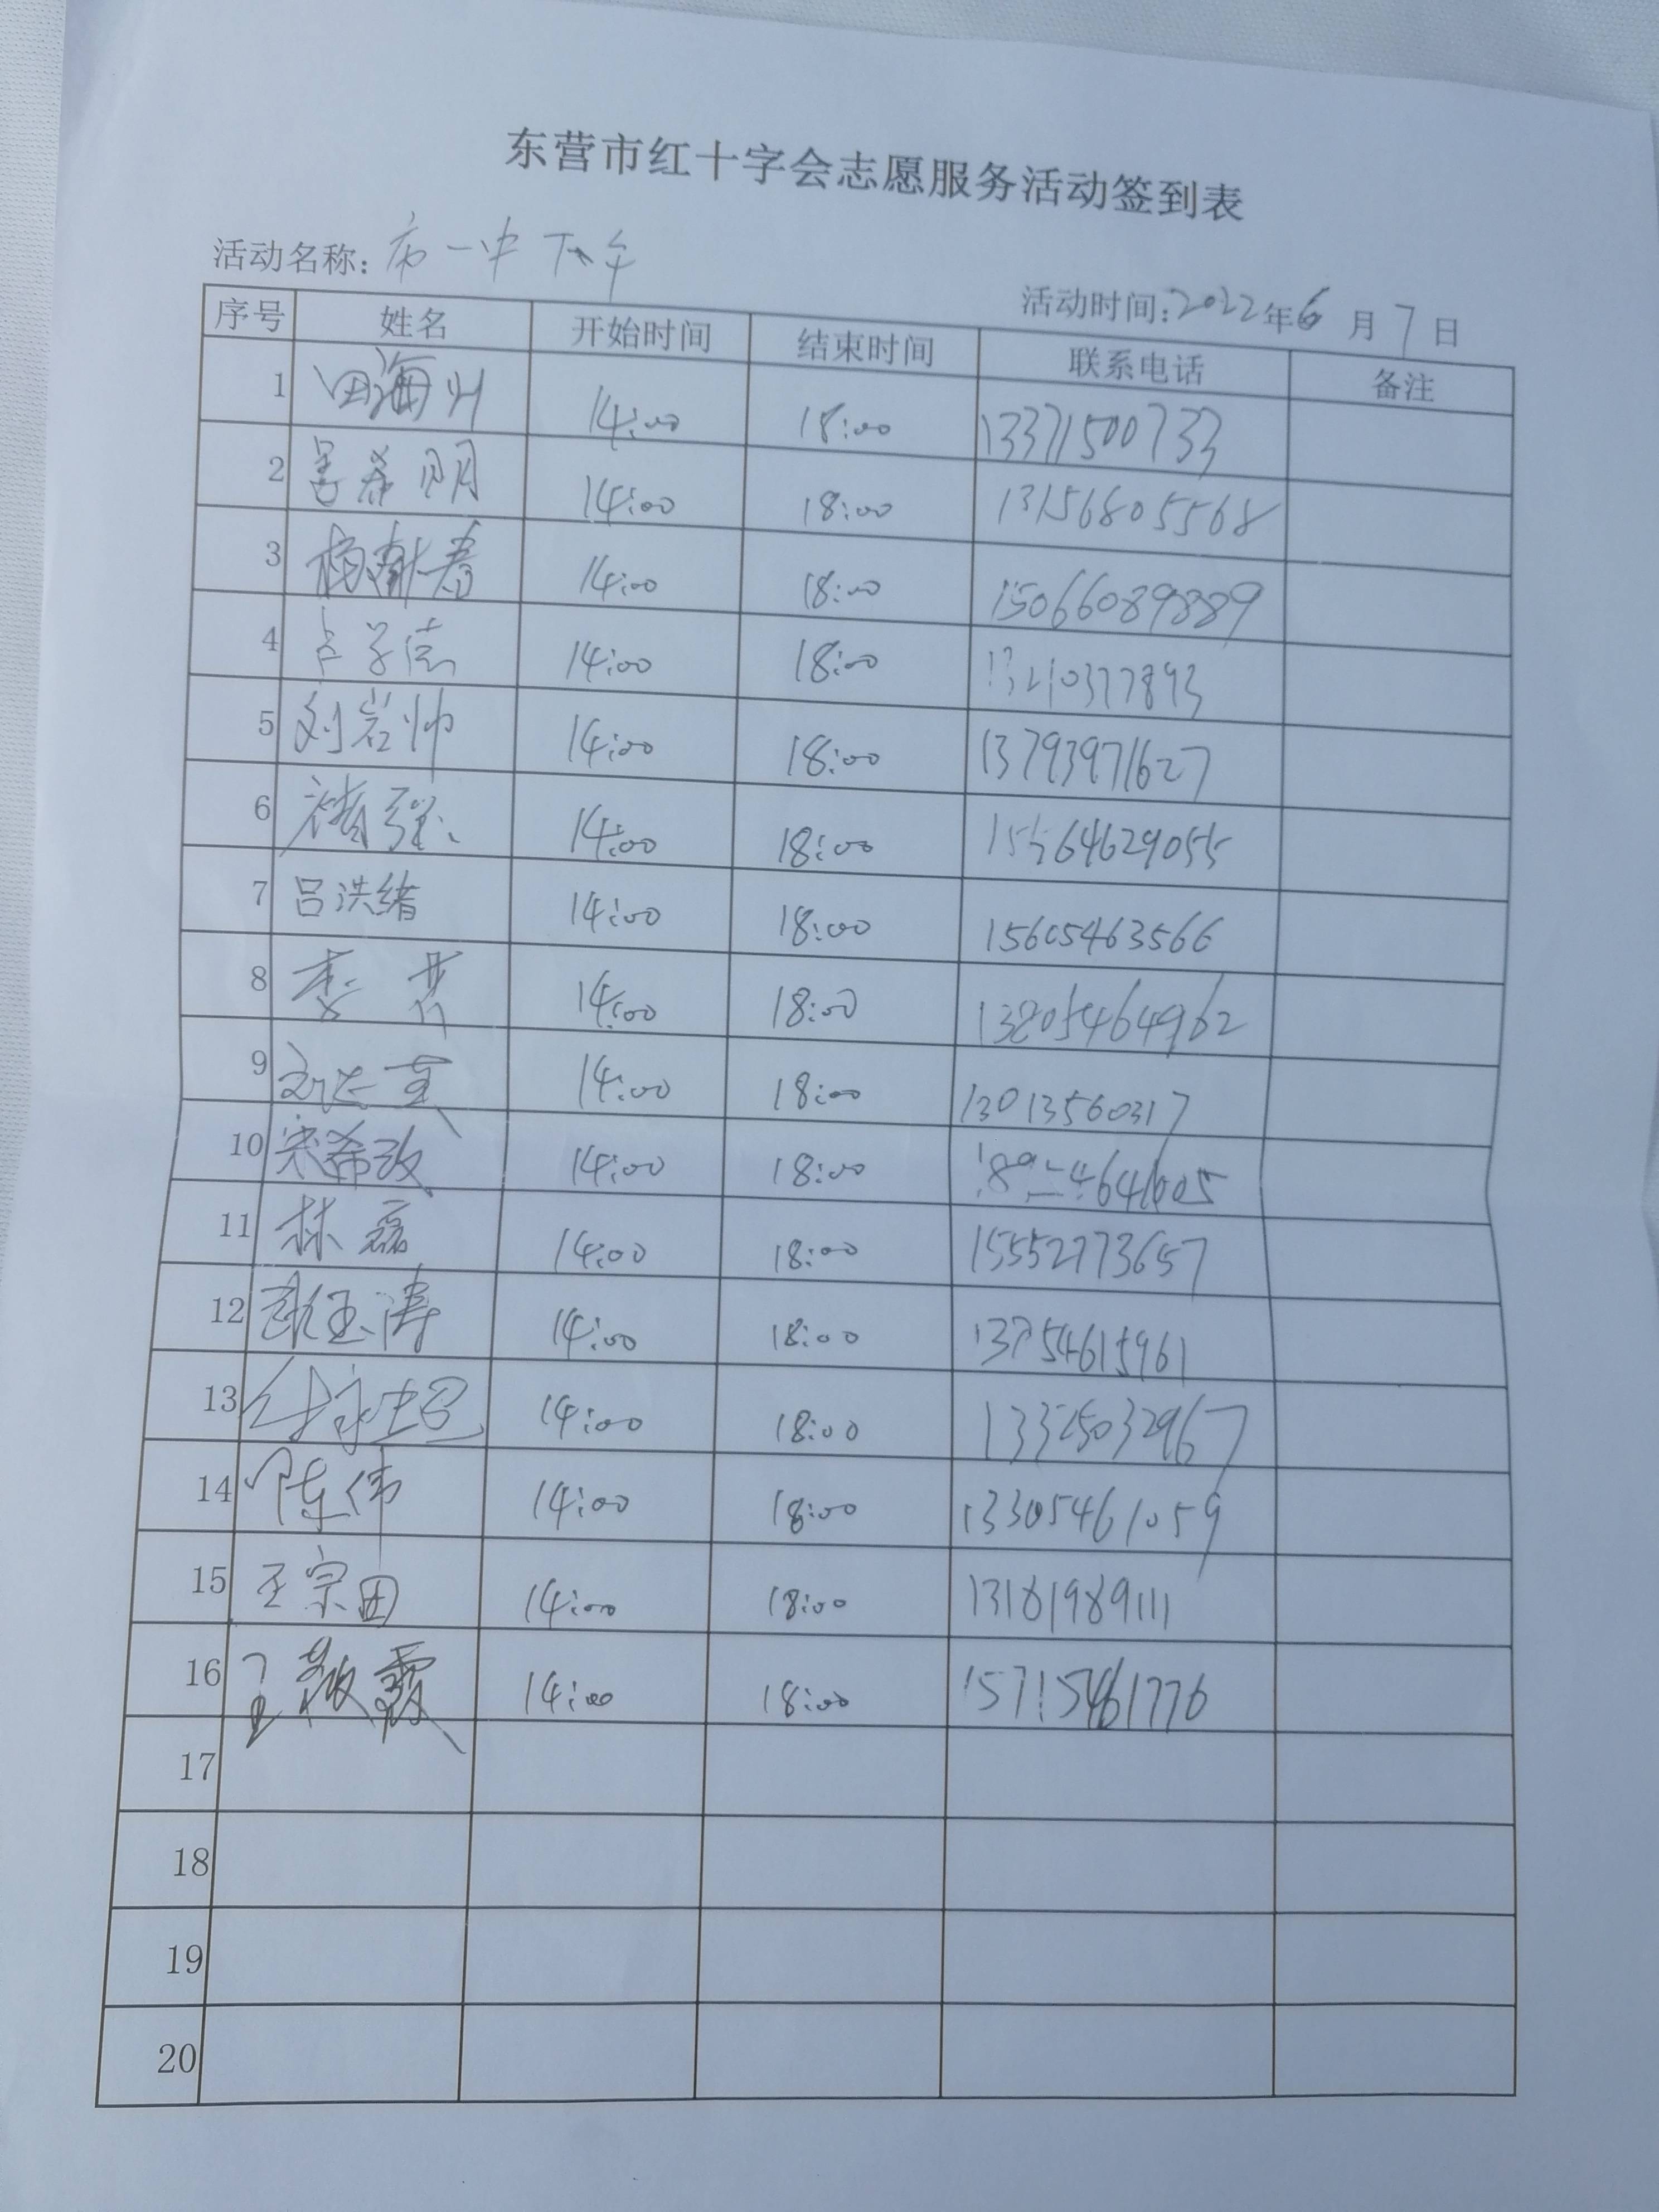 东营市红十字会志愿服务活动签到表
活动名称: 市一中 下午
活动时间:2022年6月7日
序号 姓名 开始时间 结束时间 联系电话 备注
1 田海州 14:00 18:00 13371500733
2 希明 14:00 18:00 13156805568
3 杨献春 14:00 18:00 15066089889
4 14:00 18:00 13210377893
5 刘岩帅 14:00 18:00 13793971627
6 褚强 14:00 18:00 15564629055
7 吕洪绪 14:00 18:00 15605463566
8 李 14:00 18:00 13805464962
9 14:00 18:00 13013560317
10 宋希政 14:00 18:00
11 林磊 14:00 18:00 15552773657
12 玉涛 14:00 18:00 13754615961
13 14:00 18:00 13325032967
14 陈伟 14:00 18:00 13305461059
15 王宗田 14:00 18:00 13181989111
16 王敬霞 14:00 18:00 15715461776
17
18
19
20